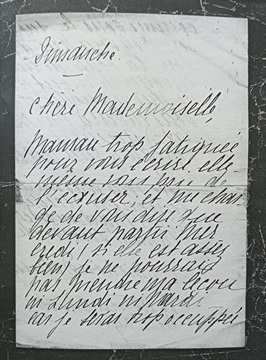 Dimanche
chère Mademoiselle,
Maman trop fatiguée
pour vous écrire elle-
même vous prie de
l'excuser, et me char
ge de vous dire que
devant partir mer
credi (si elle est assez
bien) je ne pourrais
pas prendre ma leçon
ni Lundi ni Mardi
car je serai trop occupée